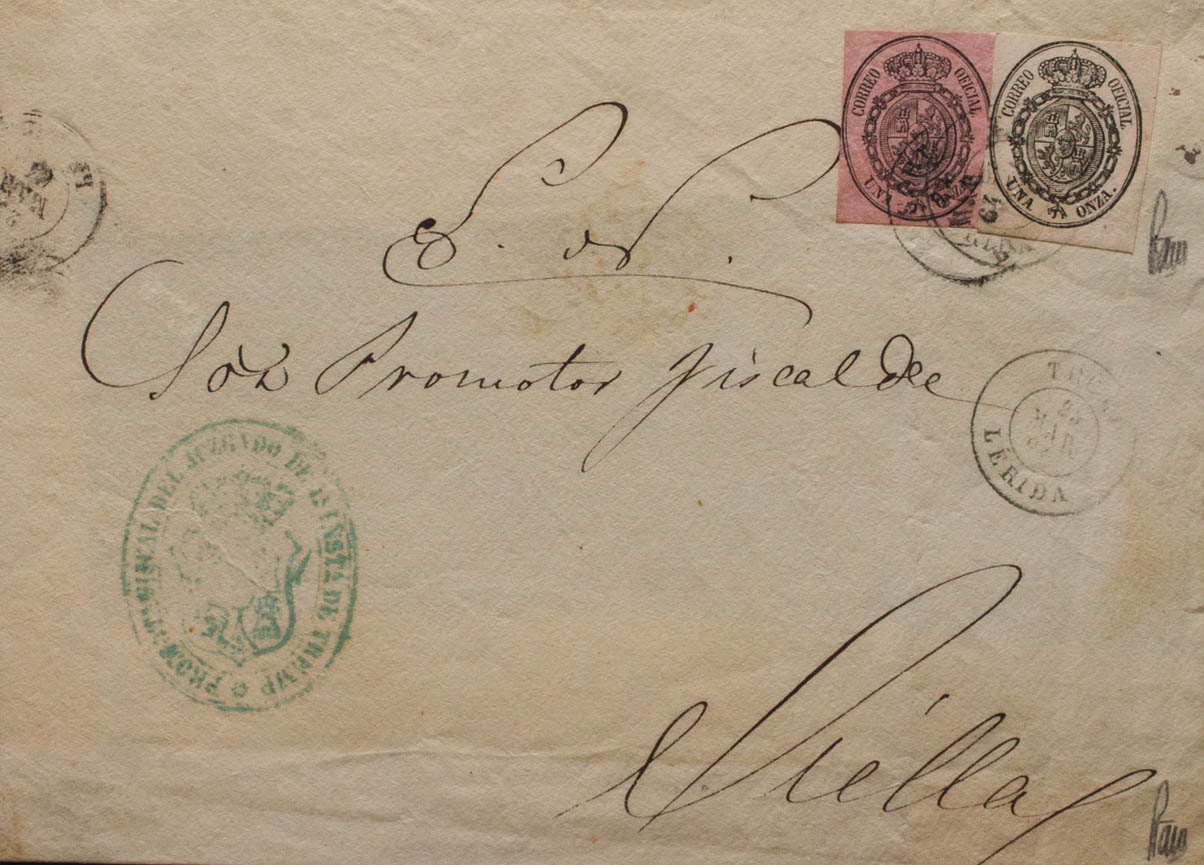 CORREO OFICIAL
UNA ONZA.
CORREO OFICIAL
UNA ONZA.
S. N.
Sor Promotor fiscal de
TREMP
23
MAR
LÉRIDA
PROMOT. FISCAL DEL JUZGADO DE 1ª INSTA DE TREMP
Viella